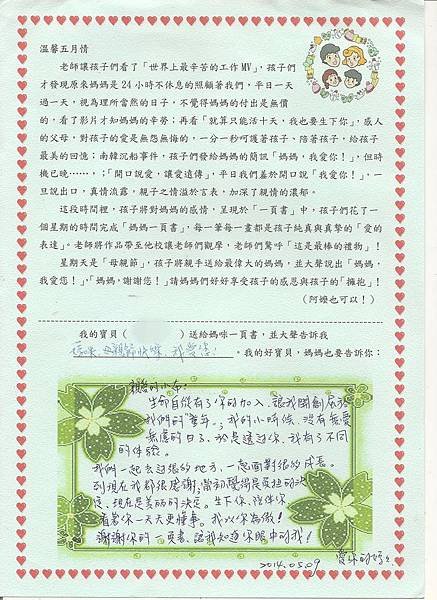 溫馨五月情
老師讓孩子們看了「世界上最辛苦的工作MV」,孩子們
才發現原來媽媽是24小時不休息的照顧著我們,平日一天
過一天,視為理所當然的日子,不覺得媽媽的付出是無價
的,看了影片才知媽媽的辛勞;再看「就算只能活十天,我也要生下你」,感人
的父母,對孩子的愛是無怨無悔的,一分一秒呵護著孩子、陪著孩子,給孩子
最美的回憶;南韓沉船事件,孩子們發給媽媽的簡訊「媽媽,我愛你!」,但時
機已晚……,;「開口說愛,讓愛遠傳」,平日我們羞於開口說「我愛你!」,一
旦說出口,真情流露,親子之情溢於言表,加深了親情的濃郁。
這段時間裡,孩子將對媽媽的感情,呈現於「一頁書」中,孩子們花了一
個星期的時間完成「媽媽一頁書」,每一筆每一畫都是孩子純真與真摯的「愛的
表達」。老師將作品帶至他校讓老師們觀摩,老師們驚呼「這是最棒的禮物」!
星期天是「母親節」,孩子將親手送給最偉大的媽媽,並大聲說出「媽媽,
我愛您!」、「媽媽,謝謝您!」請媽媽們好好享受孩子的感恩與孩子的「擁抱」!
(阿嬤也可以!)
我的寶貝( )送給媽咪一頁書,並大聲告訴我
媽咪,母親節快樂,我愛您!。我的好寶貝,媽媽也要告訴你:
親愛的小布:
生命自從有了你的加入,讓我開創屬於
我們的"童年"。我的小時候,沒有無憂
無慮的日子,於是透過你,我有了不同
的體驗。
我們一起去過很的地方,一起面對很的成長。
到現在我都很感謝,當初覺得是負擔的決
定,現在是美麗的決定。生下你、陪伴你
看著你一天天更懂事。我以你為傲!
謝謝你的一頁書,讓我知道你眼中的我!
愛你的媽
2014.05.09